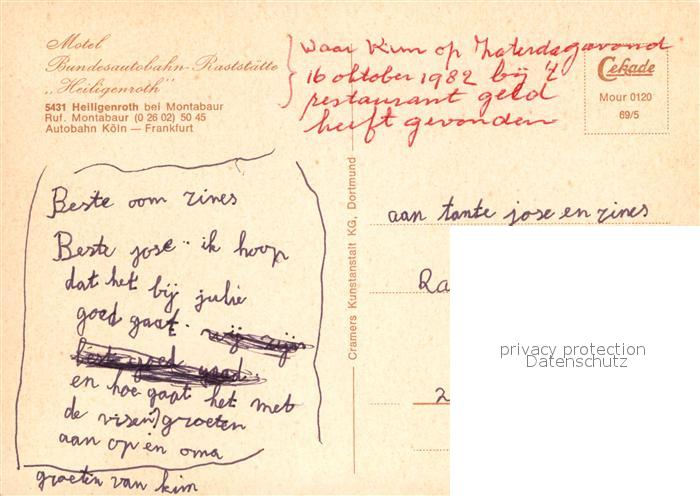 Motel
Bundesautobahn-Raststätte
„Heiligenroth"
5431 Heiligenroth bei Montabaur
Ruf. Montabaur (0 26 02) 50 45
Autobahn Köln — Frankfurt
Waar Kim op Zaterdagavond
16 oktober 1982 bij 't
restaurant geld
heeft gevonden
Cekade
Mour 0120
69/5
Beste oom rines
Beste jose ik hoop
dat het bij julie
goed gaat. wij zijn
goed
en hoe gaat het met
de vissen? groeten
aan op en oma
groeten van kim
Cramers Kunstanstalt KG, Dortmund
aan tante jose en rines
Ra
2
privacy protection
Datenschutz